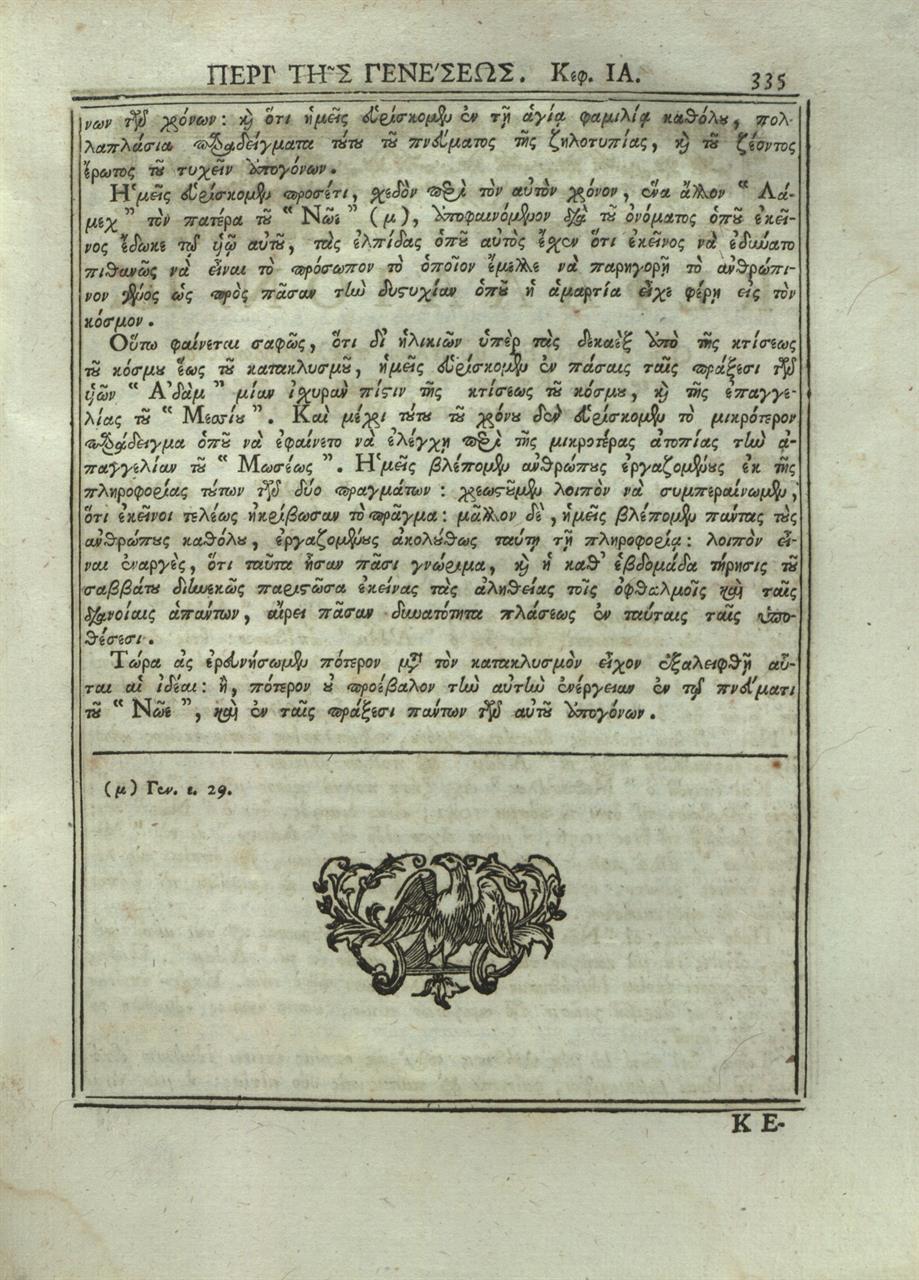 ΠΕΡῚ ΤΗ͂Σ ΓΕΝΈΣΕΩΣ. Κεφ. ΙΑ. 335
νων τῶν χρόνων: καὶ ὅτι ἡμεῖς εὑρίσκομεν ἐν τῇ ἁγίᾳ φαμιλίᾳ καθόλου, πολ-
λαπλάσια παραδείγματα τούτου τοῦ πνεύματος τῆς ζηλοτυπίας, καὶ τοῦ ζέοντος
ἔρωτος τοῦ τυχεῖν ἀπογόνων.
Ἡμεῖς εὑρίσκομεν προσέτι, σχεδὸν περὶ τὸν αὐτὸν χρόνον, ἕνα ἄλλον “ Λά-
μεχ ” τὸν πατέρα τοῦ “ Νῶε ” (μ), ἀποφαινόμενον διὰ τοῦ ὀνόματος ὁποῦ ἐκεῖ-
νος ἔδωκε τῷ υἱῷ αὐτοῦ, τὰς ἐλπίδας ὁποῦ αὐτὸς ἔχεν ὅτι ἐκεῖνος νὰ ἐδύνατο
πιθανῶς νὰ εἶναι τὸ πρόσωπον τὸ ὁποῖον ἔμελλε νὰ παρηγορῇ τὸ ἀνθρώπι-
νον γένος ὡς πρὸς πᾶσαν τὴν δυστυχίαν ὁποῦ ἡ ἁμαρτία εἶχε φέρῃ εἰς τὸν
κόσμον.
Οὕτω φαίνεται σαφῶς, ὅτι δι' ἡλικιῶν ὑπὲρ τὰς δεκαὲξ ἀπὸ τῆς κτίσεως
τοῦ κόσμου ἕως τοῦ κατακλυσμοῦ, ἡμεῖς εὑρίσκομεν ἐν πάσαις ταῖς πράξεσι τῶν
υἱῶν “ Ἀδὰμ ” μίαν ἰσχυρὰν πίστιν τῆς κτίσεως τοῦ κόσμου, καὶ τῆς ἐπαγγε-
λίας τοῦ “ Μεσίου ”. Καὶ μέχρι τούτου τοῦ χρόνου δὲν εὑρίσκομεν τὸ μικρότερον
παράδειγμα ὁποῦ νὰ ἐφαίνετο νὰ ἐλέγχῃ περὶ τῆς μικροτέρας ἀτοπίας τὴν ἀ-
παγγελίαν τοῦ “ Μωσέως ”. Ἡμεῖς βλέπομεν ἀνθρώπους ἐργαζομένους ἐκ τῆς
πληροφορίας τούτων τῶν δύο πραγμάτων: χρεωστοῦμεν λοιπὸν νὰ συμπεραίνωμεν,
ὅτι ἐκεῖνοι τελέως ἠκρίβωσαν τὸ πρᾶγμα: μᾶλλον δὲ, ἡμεῖς βλέπομεν πάντας τοὺς
ἀνθρώπους καθόλου, ἐργαζομένους ἀκολούθως ταύτῃ τῇ πληροφορίᾳ: λοιπὸν εἶ-
ναι ἐναργὲς, ὅτι ταῦτα ἦσαν πᾶσι γνώριμα, καὶ ἡ καθ' ἑβδομάδα τήρησις τοῦ
σαββάτου διηνεκῶς παριστῶσα ἐκείνας τὰς ἀληθείας τοῖς ὀφθαλμοῖς καὶ ταῖς
διανοίαις ἁπάντων, αἴρει πᾶσαν δυνατότητα πλάσεως ἐν ταύταις ταῖς ὑπο-
θέσεσι.
Τώρα ἂς ἐρευνήσωμεν πότερον μετὰ τὸν κατακλυσμὸν εἶχον ἐξαλειφθῆ αὗ-
ται αἱ ἰδέαι: ἢ, πότερον οὐ προέβαλον τὴν αὐτὴν ἐνέργειαν ἐν τῷ πνεύματι
τοῦ “ Νῶε ”, καὶ ἐν ταῖς πράξεσι πάντων τῶν αὐτοῦ ἀπογόνων.
(μ) Γεν. ε. 29.
Κ Ε-